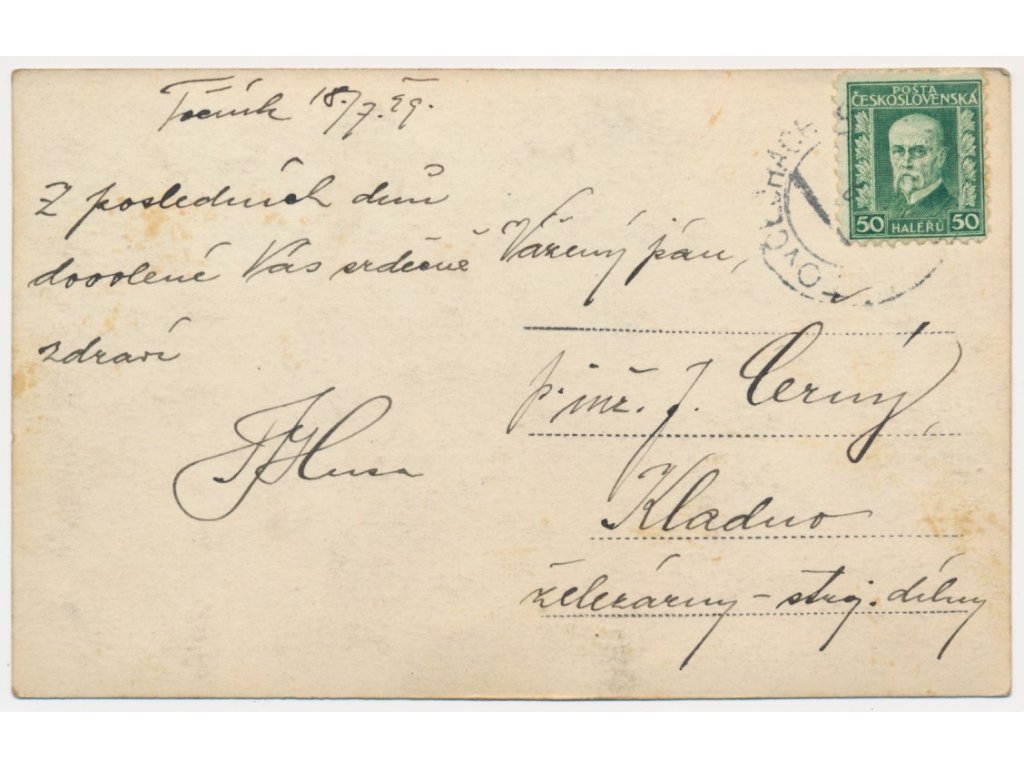 Točník 18./7. 29.
Z posledních dnů
dovolené Vás srdečně
zdraví
Husa
POŠTA
ČESKOSLOVENSKÁ
50 HALÉŘŮ 50
Vážený pán,
p. inž. J. Černý,
Kladno
železárny – stroj. dílny